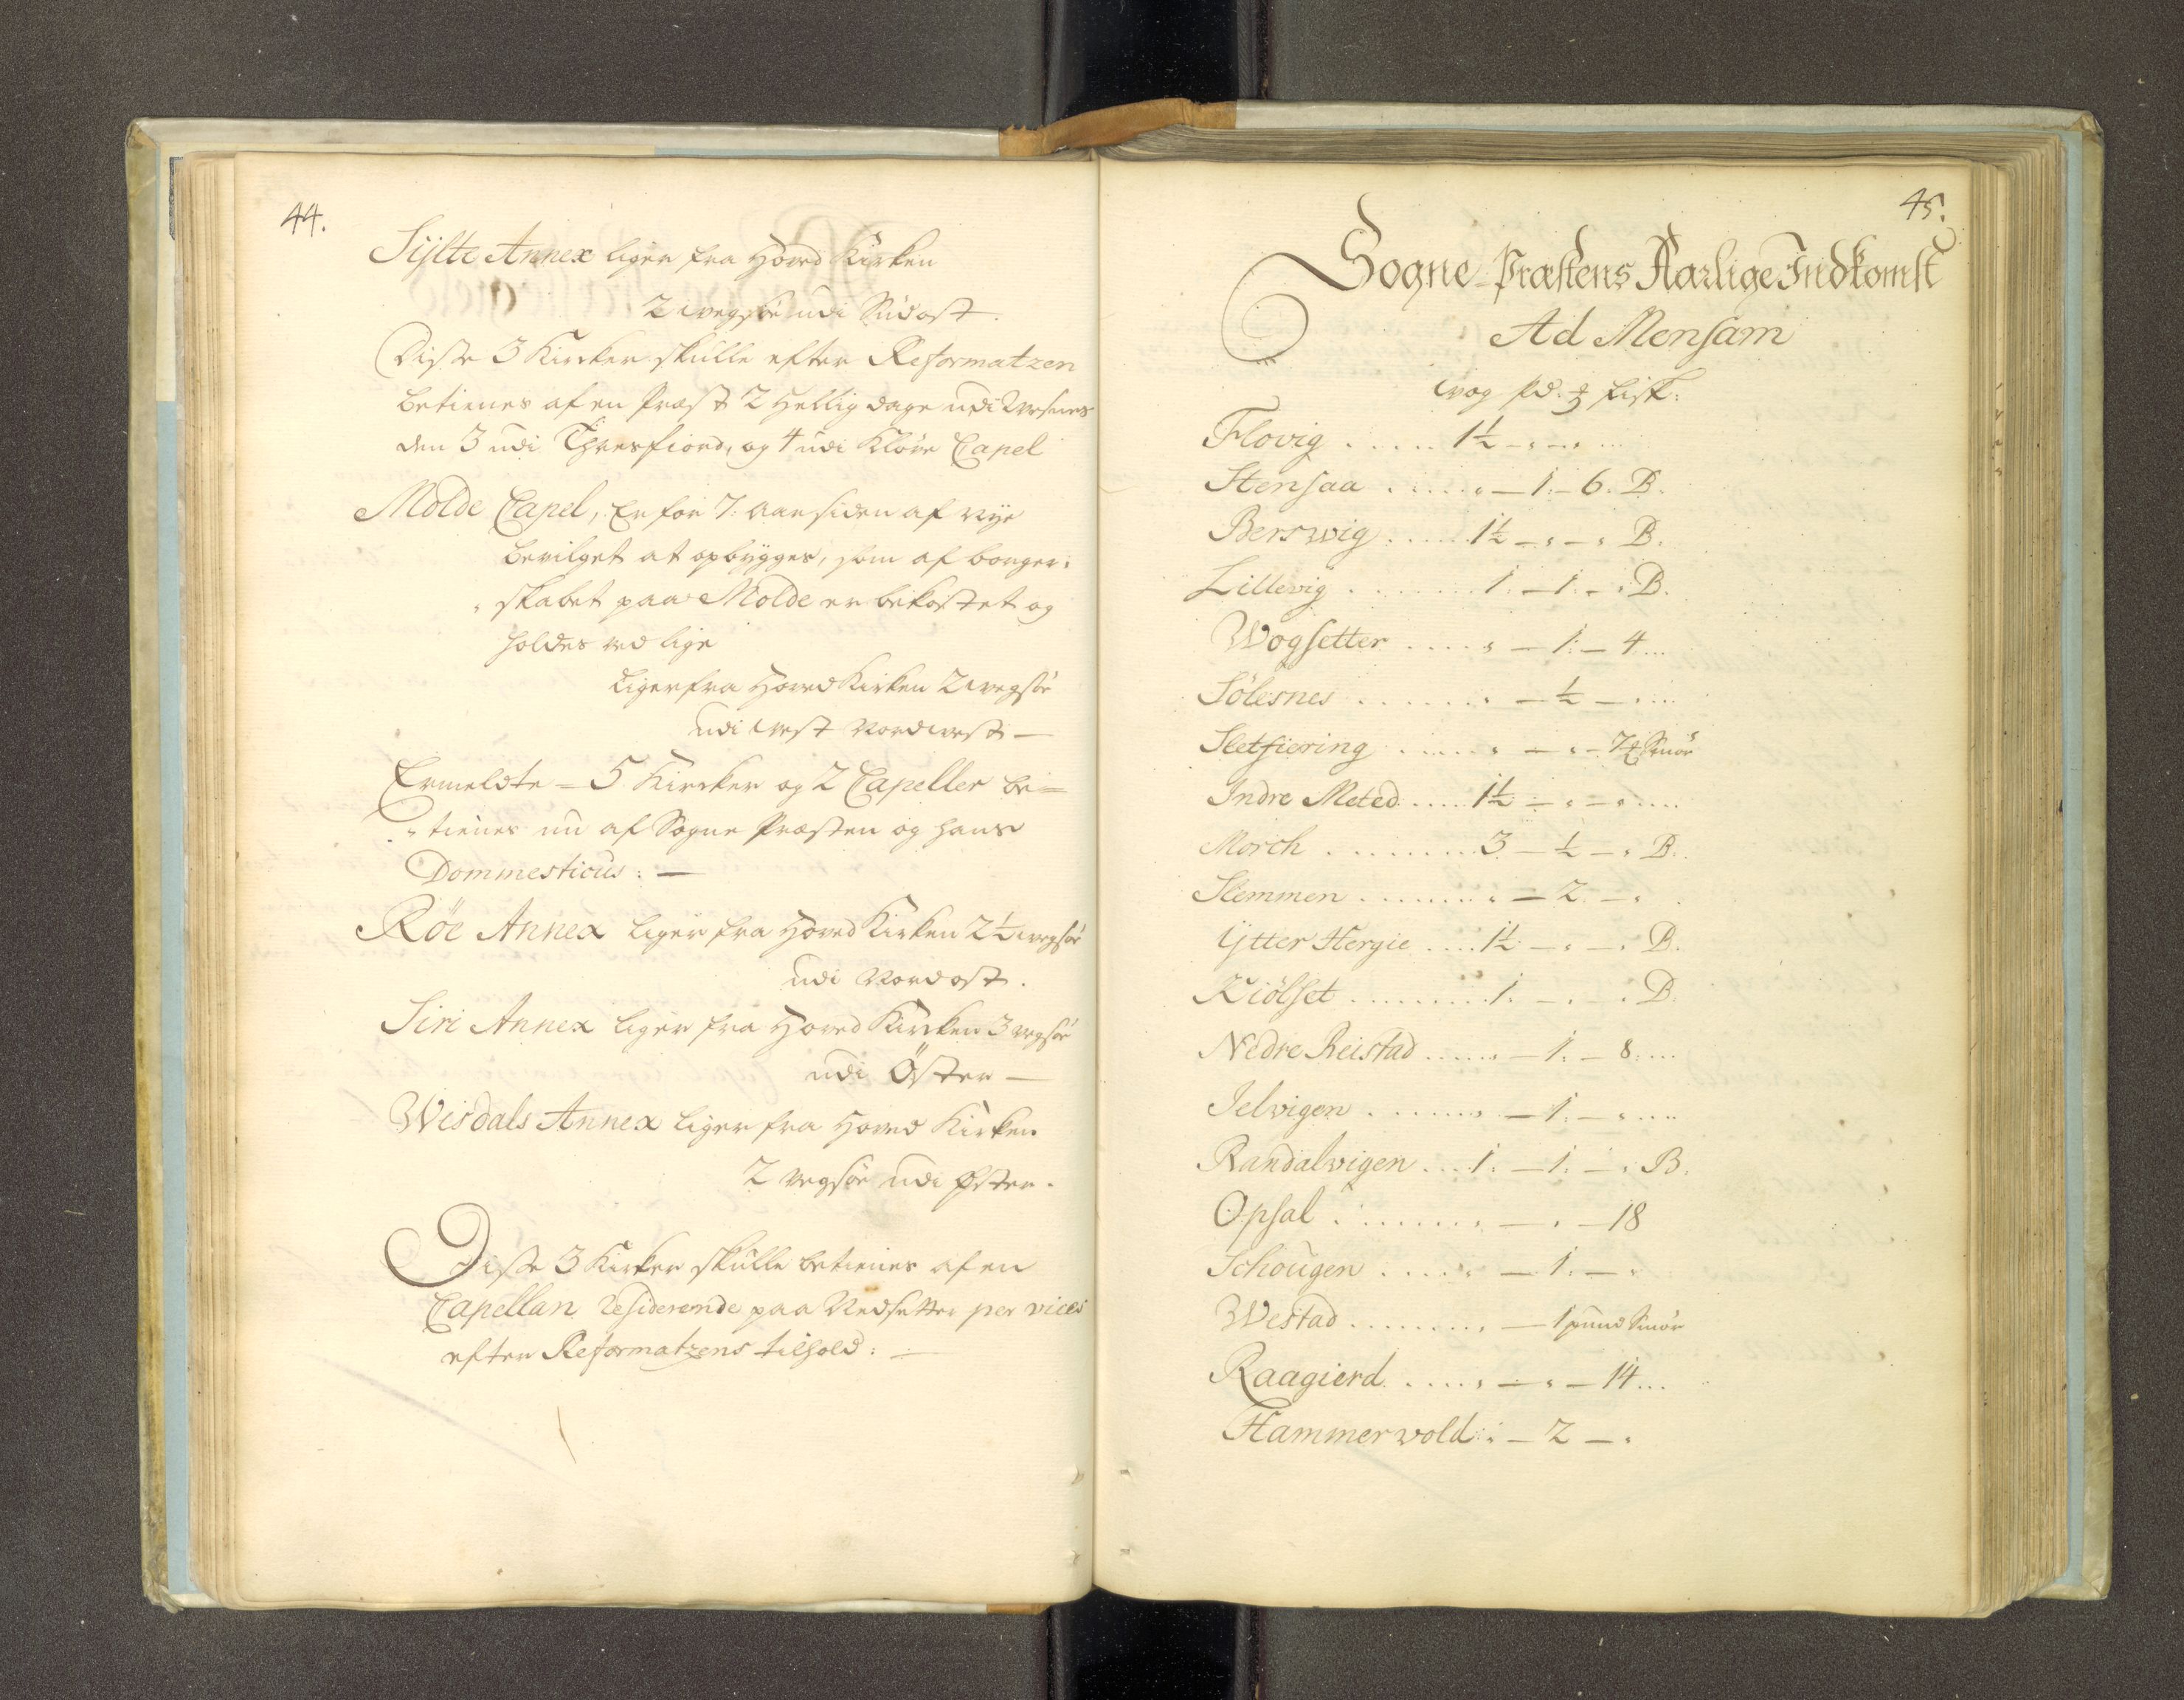 44.
Sylte Annex liger fra Hoved Kirken
2 wegsøe udi Sudost.
Disse 3 Kircker skulle efter Reformatzen
betienes af en Præst 2 Hellig dage udi Wesnes
den 3 udi Thresfiord, og 4 udi Kløve Capel
Molde Capel, Er for 7. Aar siden af nye
bevilget at opbygges, som af borger-
skabet paa Molde er bekostet og
holdes ved lige
Liger fra Hoved Kirken 2 wegsøe
udi west Nordwest —
Ermeldte 5 Kircker og 2 Capeller be=
tienes nu af Sogne Præsten og hans
Dommesticus: —
Röe Annex liger fra Hoved Kirken 2½ wegsøe
udi Nordost.
Siri Annex liger fra Hoved Kircken 3 wegsøe
udi Öster —
Wisdals Annex liger fra Hoved Kirken
2 wegsøe udi Øster.
Disse 3 Kirker skulle betienes af en
Capellan Residerende paa Nedsetter per vices
efter Reformatzens tilhold: —
45.
Sogne-Præstens Aarlige Indkomst
Ad Mensam
wog Pd. ℔ fisk:
Flovig ..... 1½ — „ — „ ...
Stensaa ..... „ — 1. — 6. B.
Berswig ..... 1½ — „ — „ B.
Lillevig ....... 1. — 1. — „ B.
Wogsetter .... „ — 1. — 4 ...
Sölesnes ...... „ — ½ — „ ...
Sletfiering ..... „ — „ — 7 ℔ Smör
Indre Meted .... 1½ — „ — „ ....
Morch ........ 3 — ½ — „ B.
Slemmen ........ „ — 2. — „
Ytter Hergie .... 1½ — „ — „ B.
Kiölset ......... 1. — „ — „ B.
Nedre Reistad ...... „ — 1. — 8 ....
Jelvigen ....... „ — 1. — „ ....
Randalvigen ... 1. — 1. — „ B.
Opsal ........ „ — „ — 18
Schougen ..... „ — 1. — „
Westad ......... „ — 1 pund Smör
Raagierd ..... „ — „ — 14 ...
Hammervold : „ — 2 — „